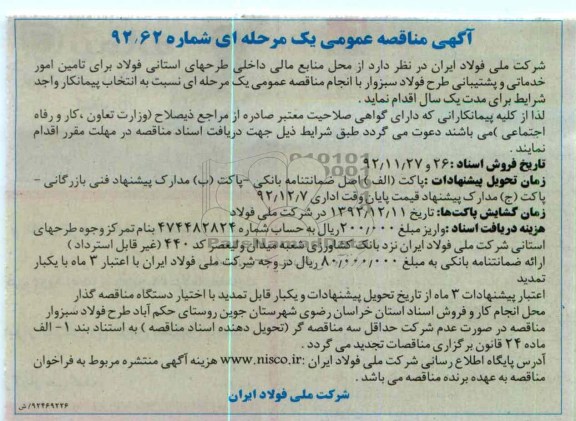 آگهی مناقصه عمومی یک مرحله ای شماره ۹۲،۶۲
شرکت ملی فولاد ایران در نظر دارد از محل منابع مالی داخلی طرحهای استانی فولاد برای تامین امور
خدماتی و پشتیبانی طرح فولاد سبزوار با انجام مناقصه عمومی یک مرحله ای نسبت به انتخاب پیمانکار واجد
شرایط برای مدت یک سال اقدام نماید .
لذا از کلیه پیمانکارانی که دارای گواهی صلاحیت معتبر صادره از مراجع ذیصلاح (وزارت تعاون ،کار و رفاه
اجتماعی )می باشند دعوت می گردد طبق شرایط ذیل جهت دریافت اسناد مناقصه در مهلت مقرر اقدام
نمایند .
تاریخ فروش اسناد :۲۶ و ۹۲/۱۱/۲۷
زمان تحویل پیشنهادات :پاکت (الف ) اصل ضمانتنامه بانکی -پاکت (ب) مدارک پیشنهاد فنی بازرگانی -
پاکت (ج) مدارک پیشنهاد قیمت پایان وقت اداری ۹۲/۱۲/۷
زمان گشایش پاکت‌ها: تاریخ ۱۳۹۲/۱۲/۱۱ در شرکت ملی فولاد
هزینه دریافت اسناد :واریز مبلغ ۲۰۰/۰۰۰ ریال به حساب شماره ۴۷۴۴۸۲۸۲۴ بنام تمرکز وجوه طرحهای
استانی شرکت ملی فولاد ایران نزد بانک کشاورزی شعبه میدان ولیعصر کد ۴۴۰ (غیر قابل استرداد )
ارائه ضمانتنامه بانکی به مبلغ ۸۰/۰۰۰/۰۰۰ ریال در وجه شرکت ملی فولاد ایران با اعتبار ۳ ماه با یکبار
تمدید
اعتبار پیشنهادات ۳ ماه از تاریخ تحویل پیشنهادات و یکبار قابل تمدید با اختیار دستگاه مناقصه گذار
محل انجام کار و فروش اسناد استان خراسان رضوی شهرستان جوین روستای حکم آباد طرح فولاد سبزوار
مناقصه در صورت عدم شرکت حداقل سه مناقصه گر (تحویل دهنده اسناد مناقصه ) به استناد بند ۱- الف
ماده ۲۴ قانون برگزاری مناقصات تجدید می گردد .
آدرس پایگاه اطلاع رسانی شرکت ملی فولاد ایران :www.nisco.ir هزینه آگهی منتشره مربوط به فراخوان
مناقصه به عهده برنده مناقصه می باشد .
شرکت ملی فولاد ایران
۹۲۴۶۹۲۲۶/ ش